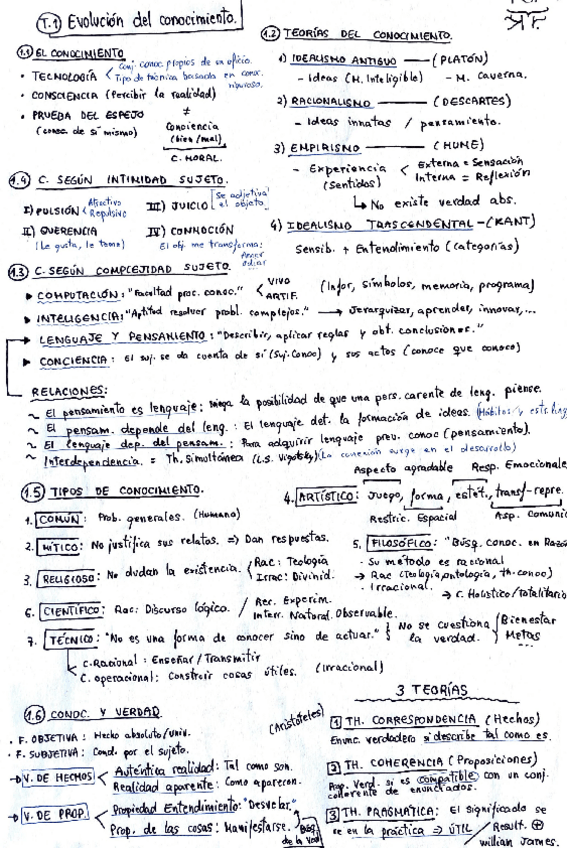 T.1 Evolución del conocimiento.
1.1 EL CONOCIMIENTO
• TECNOLOGÍA < Conj. conoc. propios de un oficio.
Tipo de técnica basada en conoc. riguroso.
• CONSCIENCIA (Percibir la realidad)
≠
• PRUEBA DEL ESPEJO
(conoc. de sí mismo)
Conciencia
(bien/mal)
C. MORAL.
1.2 TEORÍAS DEL CONOCIMIENTO.
1) IDEALISMO ANTIGUO — (PLATÓN)
- Ideas (M. Inteligible) - M. Caverna.
2) RACIONALISMO — (DESCARTES)
- Ideas innatas / pensamiento.
3) EMPIRISMO — (HUME)
- Experiencia (Sentidos) < Externa = Sensación
Interna = Reflexión
↳ No existe verdad abs.
4) IDEALISMO TRASCENDENTAL - (KANT)
Sensib. + Entendimiento (categorías)
1.4 C. SEGÚN INTIMIDAD SUJETO.
I) PULSIÓN < Afectivo
Repulsivo
III) JUICIO [Se adjetiva
el objeto
II) QUERENCIA
(Le gusta, le teme)
IV) CONMOCIÓN
El obj. me transforma:
Amor
odiar
1.3 C. SEGÚN COMPLEJIDAD SUJETO.
▸ COMPUTACIÓN: "Facultad proc. conoc." < VIVO
ARTIF.
(Infor, símbolos, memoria, programa)
▸ INTELIGENCIA: "Aptitud resolver probl. complejos." → Jerarquizar, aprender, innovar,...
▸ LENGUAJE Y PENSAMIENTO: "Describir, aplicar reglas y obt. conclusiones."
▸ CONCIENCIA: El suj. se da cuenta de sí (Suj. Conoc) y sus actos (conoce que conoce)
RELACIONES:
~ El pensamiento es lenguaje: niega la posibilidad de que una pers. carente de leng. piense.
~ El pensam. depende del leng.: El lenguaje det. la formación de ideas. (Hábitos/y estr. ling
~ El lenguaje dep. del pensam.: Para adquirir lenguaje prev. conoc (pensamiento).
~ Interdependencia. = Th. Simultánea (L.S. Vigotsky) (La conexión surge en el desarrollo)
1.5 TIPOS DE CONOCIMIENTO.
1. COMÚN: Prob. generales. (Humano)
2. MÍTICO: No justifica sus relatos. ⇒ Dan respuestas.
3. RELIGIOSO: No dudan la existencia. { Rac: Teología
Irrac: Divinid.
Aspecto agradable Resp. Emocionale
4. ARTÍSTICO: Juego, forma, estét., transf-repre.
Restric. Espacial Asp. Comunic
5. FILOSÓFICO: "Búsq. Conoc. en Razón
- Su método es racional
→ Rac (Teología, ontología, th. conoc)
- Irracional.
→ C. Holístico/Totalitario
6. CIENTÍFICO: Rac: Discurso lógico. / Rec. Experim.
Interr. Natural. Observable.
7. TÉCNICO: "No es una forma de conocer sino de actuar." } No se cuestiona la verdad. { Bienestar
Metas
C. Racional: Enseñar/Transmitir
C. operacional: Construir cosas útiles. (Irracional)
1.6 CONOC. Y VERDAD
• F. OBJETIVA: Hecho absoluto/univ.
• F. SUBJETIVA: Cond. por el sujeto.
(Aristóteles)
→ V. DE HECHOS < Auténtica realidad: Tal como son.
Realidad aparente: Como aparecen.
→ V. DE PROP. < Propiedad Entendimiento: "Desvelar."
Prop. de las cosas: Manifestarse.
Búsq. de la Verd
3 TEORÍAS
1 TH. CORRESPONDENCIA (Hechos)
Enunc. verdadero si describe tal como es.
2 TH. COHERENCIA (Proposiciones)
Prop. Verd. si es compatible con un conj.
coherente de enunciados.
3 TH. PRAGMÁTICA: El significado se
ve en la práctica ⇒ ÚTIL / Result. ⊕
willian James.